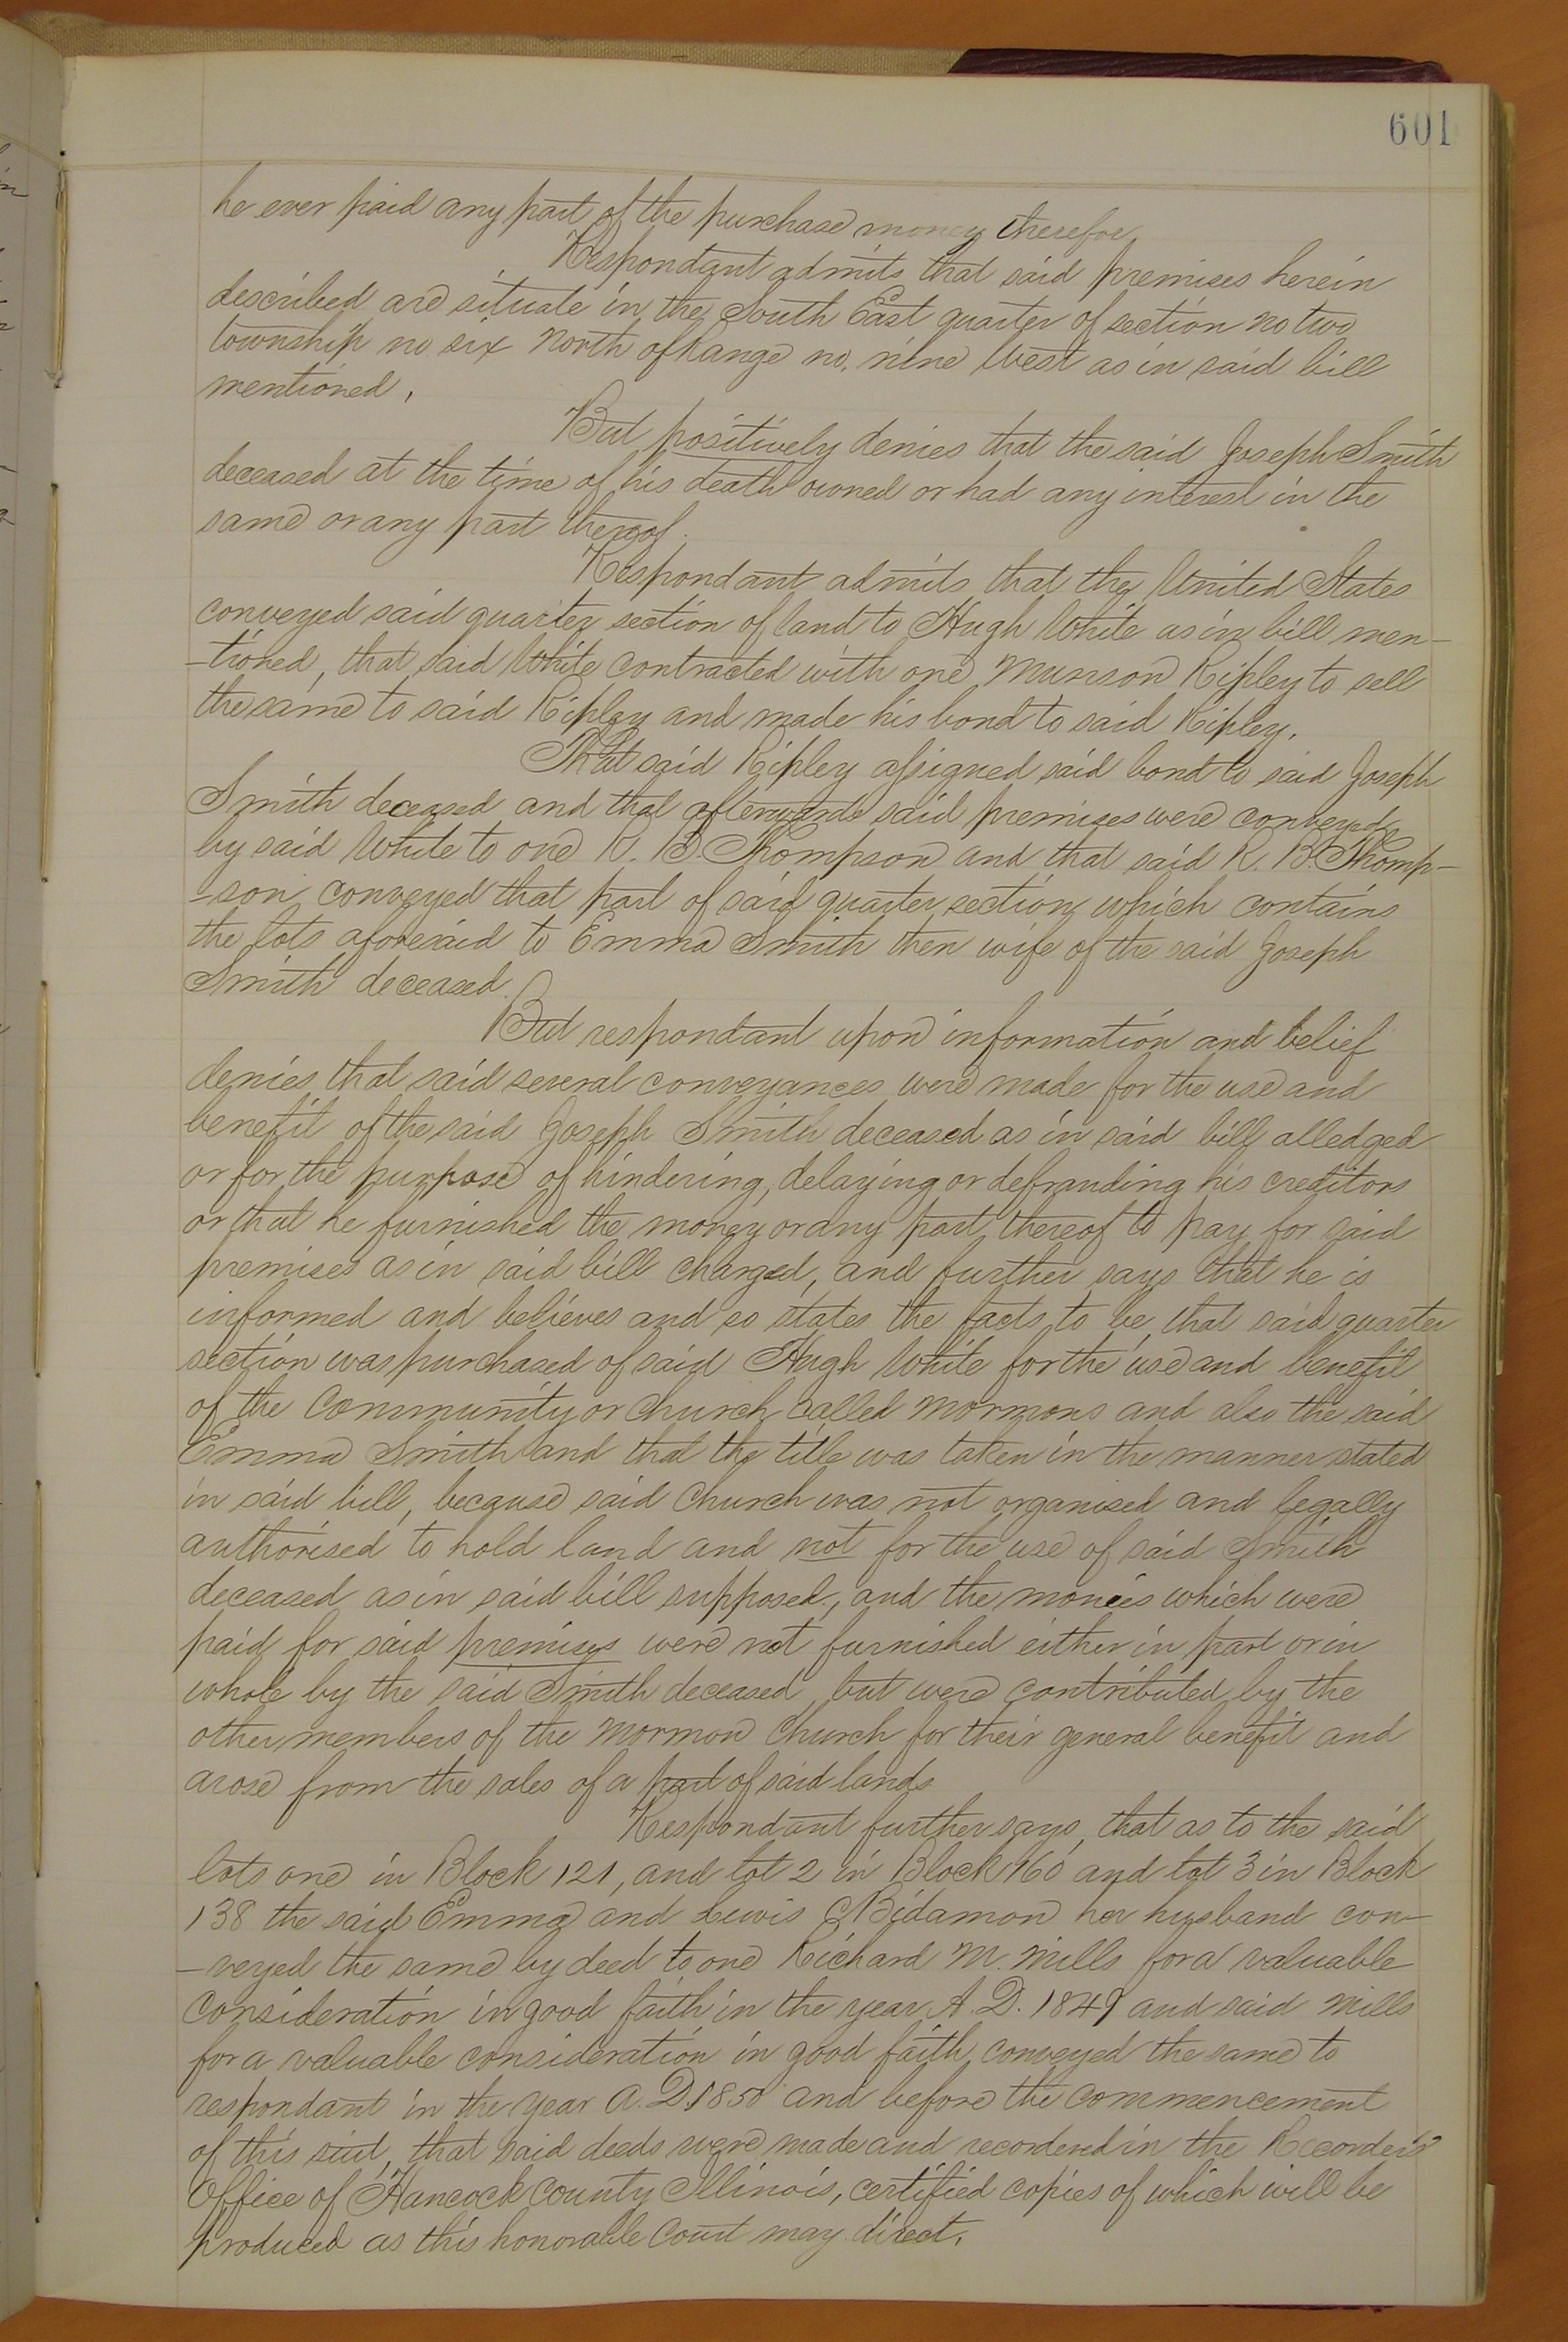 601
he ever paid any part of the purchase money therefor,
Respondant admits that said premises herein
described are situate in the South East quarter of section no two
township no six North of Range no. nine West as in said bill
mentioned,
But positively denies that the said Joseph Smith
deceased at the time of his death owned or had any interest in the
same or any part thereof.
Respondant admits that the United States
conveyed said quarter section of land to Hugh White as in bill men-
-tioned, that said White contracted with one Munson Ripley to sell
the same to said Ripley and made his bond to said Ripley.
That said Ripley assigned said bond to said Joseph
Smith deceased and that afterwards said premises were conveyed
by said White to one R. B. Thompson and that said R. B. Thomp-
-son conveyed that part of said quarter section which contains
the lots aforesaid to Emma Smith then wife of the said Joseph
Smith deceased.
But respondant upon information and belief
denies that said several conveyances were made for the use and
benefit of the said Joseph Smith deceased as in said bill alledged
or for the purpose of hindering, delaying or defrauding his creditors
or that he furnished the money or any part thereof to pay for said
premises as in said bill charged, and further says that he is
informed and believes and so states the facts to be that said quarter
section was purchased of said Hugh White for the use and benefit
of the Community or Church called Mormons and also the said
Emma Smith and that the title was taken in the manner stated
in said bill, because said Church was not organised and legally
authorised to hold land and not for the use of said Smith
deceased as in said bill supposed, and the monies which were
paid for said premises were not furnished either in part or in
whole by the said Smith deceased but were contributed by the
other members of the Mormon Church for their general benefit and
arose from the sales of a part of said lands
Respondant further says, that as to the said
lots one in Block 121, and lot 2 in Block 160 and lot 3 in Block
138 the said Emma and Lewis C Bidamon her husband con-
-veyed the same by deed to one Richard M. Mills for a valuable
consideration in good faith in the year A. D. 1849 and said Mills
for a valuable consideration in good faith conveyed the same to
respondant in the year A. D. 1850 and before the commencement
of this suit, that said deeds were made and recordered in the Recorder's
Office of Hancock County Illinois, certified copies of which will be
produced as this honorable Court may direct.